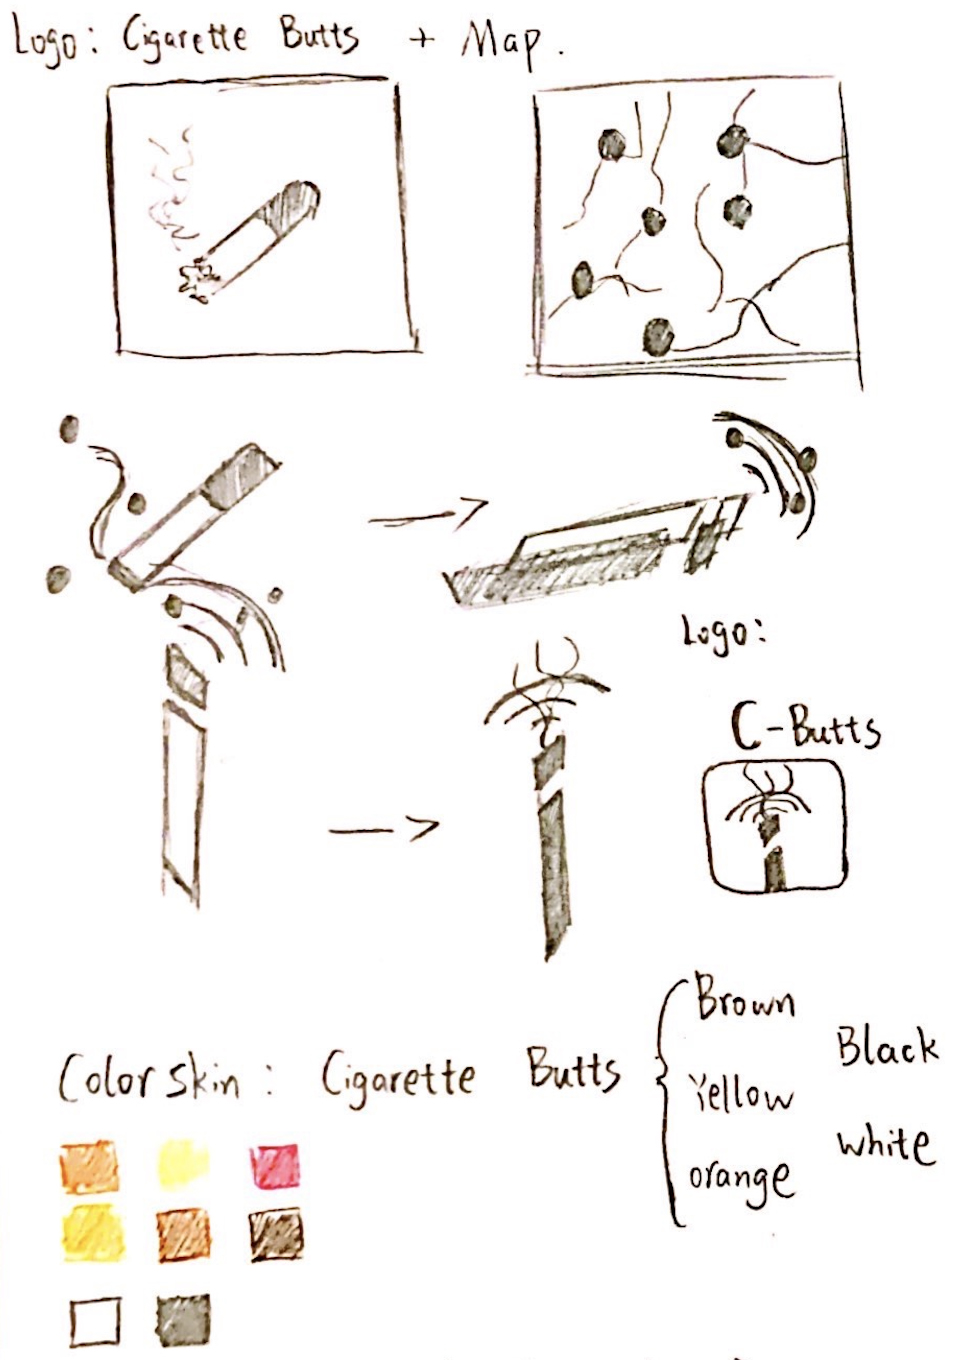 Logo: Cigarette Butts + Map.
Logo:
C-Butts
Color skin: Cigarette Butts
Brown
Yellow
orange
Black
white